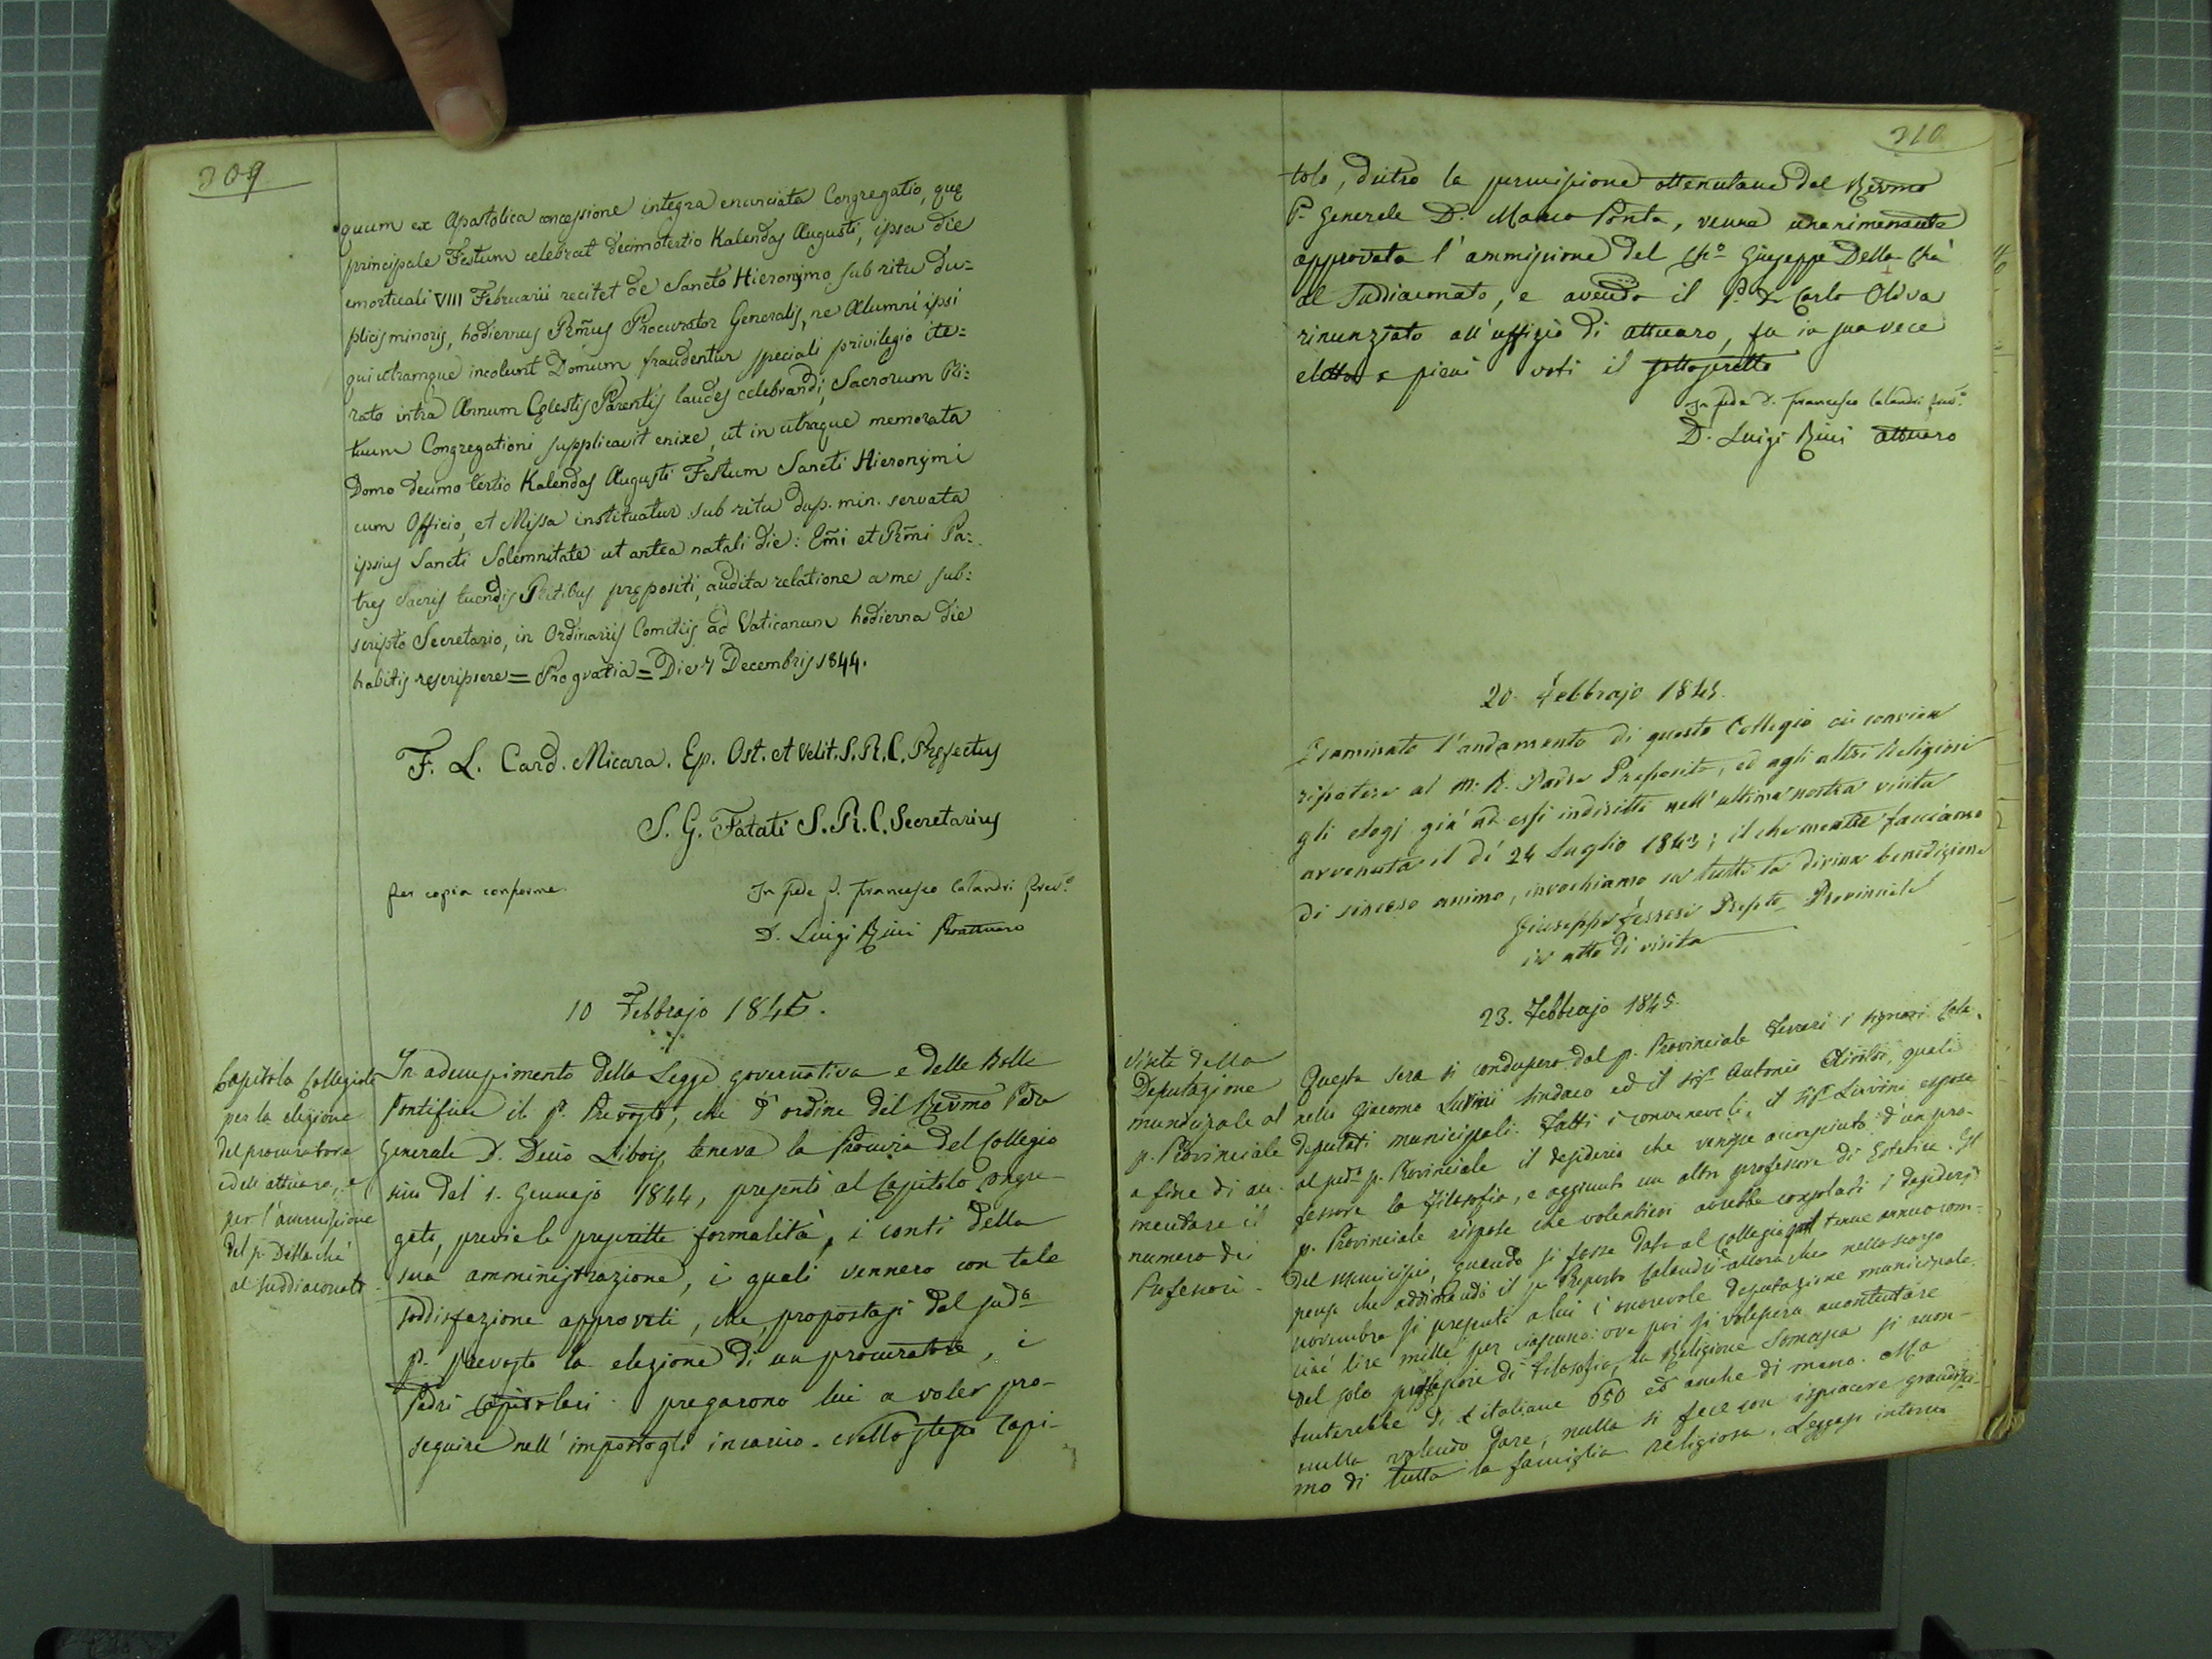 309
quum ex Apostolica concessione integra enunciata Congregatio, quę
principale Festum celebrat decimotertio Kalendas Augusti, ipsa die
emortuali VIII Februarii recitet de Sancto Hieronymo sub ritu du=
plicis minoris, hodiernus Rm̃us Procurator Generalis, ne Alumni ipsi
qui utramque incolunt Domum fraudentur speciali privilegio ite=
rato intra Annum Cęlestis Parentis laudes celebrandi, Sacrorum Ri=
tuum Congregationi supplicavit enixe, ut in utraque memorata
Domo decimo tertio Kalendas Augusti Festum Sancti Hieronymi
cum Officio, et Missa instituatur sub ritu dup. min. servata
ipsius Sancti Solemnitate ut antea natali die: Em̃i et Rm̃i Pa=
tres Sacris tuendis Ritibus prępositi, audita relatione a me sub=
scripto Secretario, in Ordinariis Comitiis ad Vaticanum hodierna die
habitis rescripsere = Pro gratia = Die 7 Decembris 1844.
F. L. Card. Micara. Ep. Ost. et Velit. S. R. C. Pręfectus
S. G. Fatati S. R. C. Secretarius
per copia conforme
In fede P. Francesco Calandri Prevo.
D. Luigi Bini Proattuaro
10 Febbrajo 1845.
Capitolo Collegiale
per la elezione
del procuratore
ed dell'attuaro, e
per l'ammissione
del p. Dellachà
al suddiaconato.
In adempimento della Legge governativa e delle Bolle
Pontificie il P. Prevosto, che d'ordine del Revmo Padre
Generale D. Decio Libois, teneva la Procura del Collegio
sin dal 1. Gennajo 1844, presentò al Capitolo congre-
gato, previe le prescritte formalità, i conti della
sua amministrazione, i quali vennero con tale
soddisfazione approvati, che, propostasi dal sudo
P. Prevosto la elezione di un procuratore, i
Padri Capitolari pregarono lui a voler pro-
seguire nell'impostogli incarico. Nello stesso Capi-
310
tolo, dietro la permissione ottenutane dal Revmo
P. Generale D. Marco Ponta, venne unanimemente
approvata l'ammissione del Cho. Giuseppe Della Chà
al Suddiaconato, e avendo il P. D. Carlo Oliva
rinunziato all'uffizio di attuaro, fu in sua vece
eletto a pieni voti il sottoscritto
In fede D. Francesco Calandri Prevo.
D. Luigi Bini attuaro
20 Febbrajo 1845.
Esaminato l'andamento di questo Collegio ci convien
ripetere al M. R. Padre Preposito, ed agli altri Religiosi
gli elogj già ad essi indiritti nell'ultima nostra visita
avvenuta il dì 24 Luglio 1843; il che mentre facciamo
di sincero animo, invochiamo su tutti la divina benedizione
Giuseppe Ferreri Prepto. Provinciale
in atto di visita
23. Febbrajo 1845.
Visita della
Deputazione
municipale al
p. Provinciale
a fine di au-
mentare il
numero dei
Professori.
Questa sera si condussero dal p. Provinciale Ferreri i signori Colo-
nello Giacomo Luvini sindaco ed il sigr. Antonio quali
deputati municipali. Fatti i convenevoli, il sigr. Luvini espose
al sudo. p. Provinciale il desiderio che venisse accresciuto d'un pro-
fessore la Filosofia, e aggiunto un altro professore di Estetica. Il
p. Provinciale rispose che volentieri avrebbe consolati i desiderj
del Municipio, quando si fosse dato al collegio quel tenue annuo com-
penso che addimandò il p. Preposto Calandri allorachè nello scorso
novembre si presentò a lui l'onorevole deputazione municipale
cioè lire mille per ciascuno: ove poi si volessero accontentare
del solo professore di Filosofia, la Religione Somasca si accon-
tenterebbe di £ italiane 650 ed anche di meno. Ma
nulla volendo dare, nulla si fece con ispiacere grandissi-
mo di tutta la famiglia religiosa. Leggasi intorno